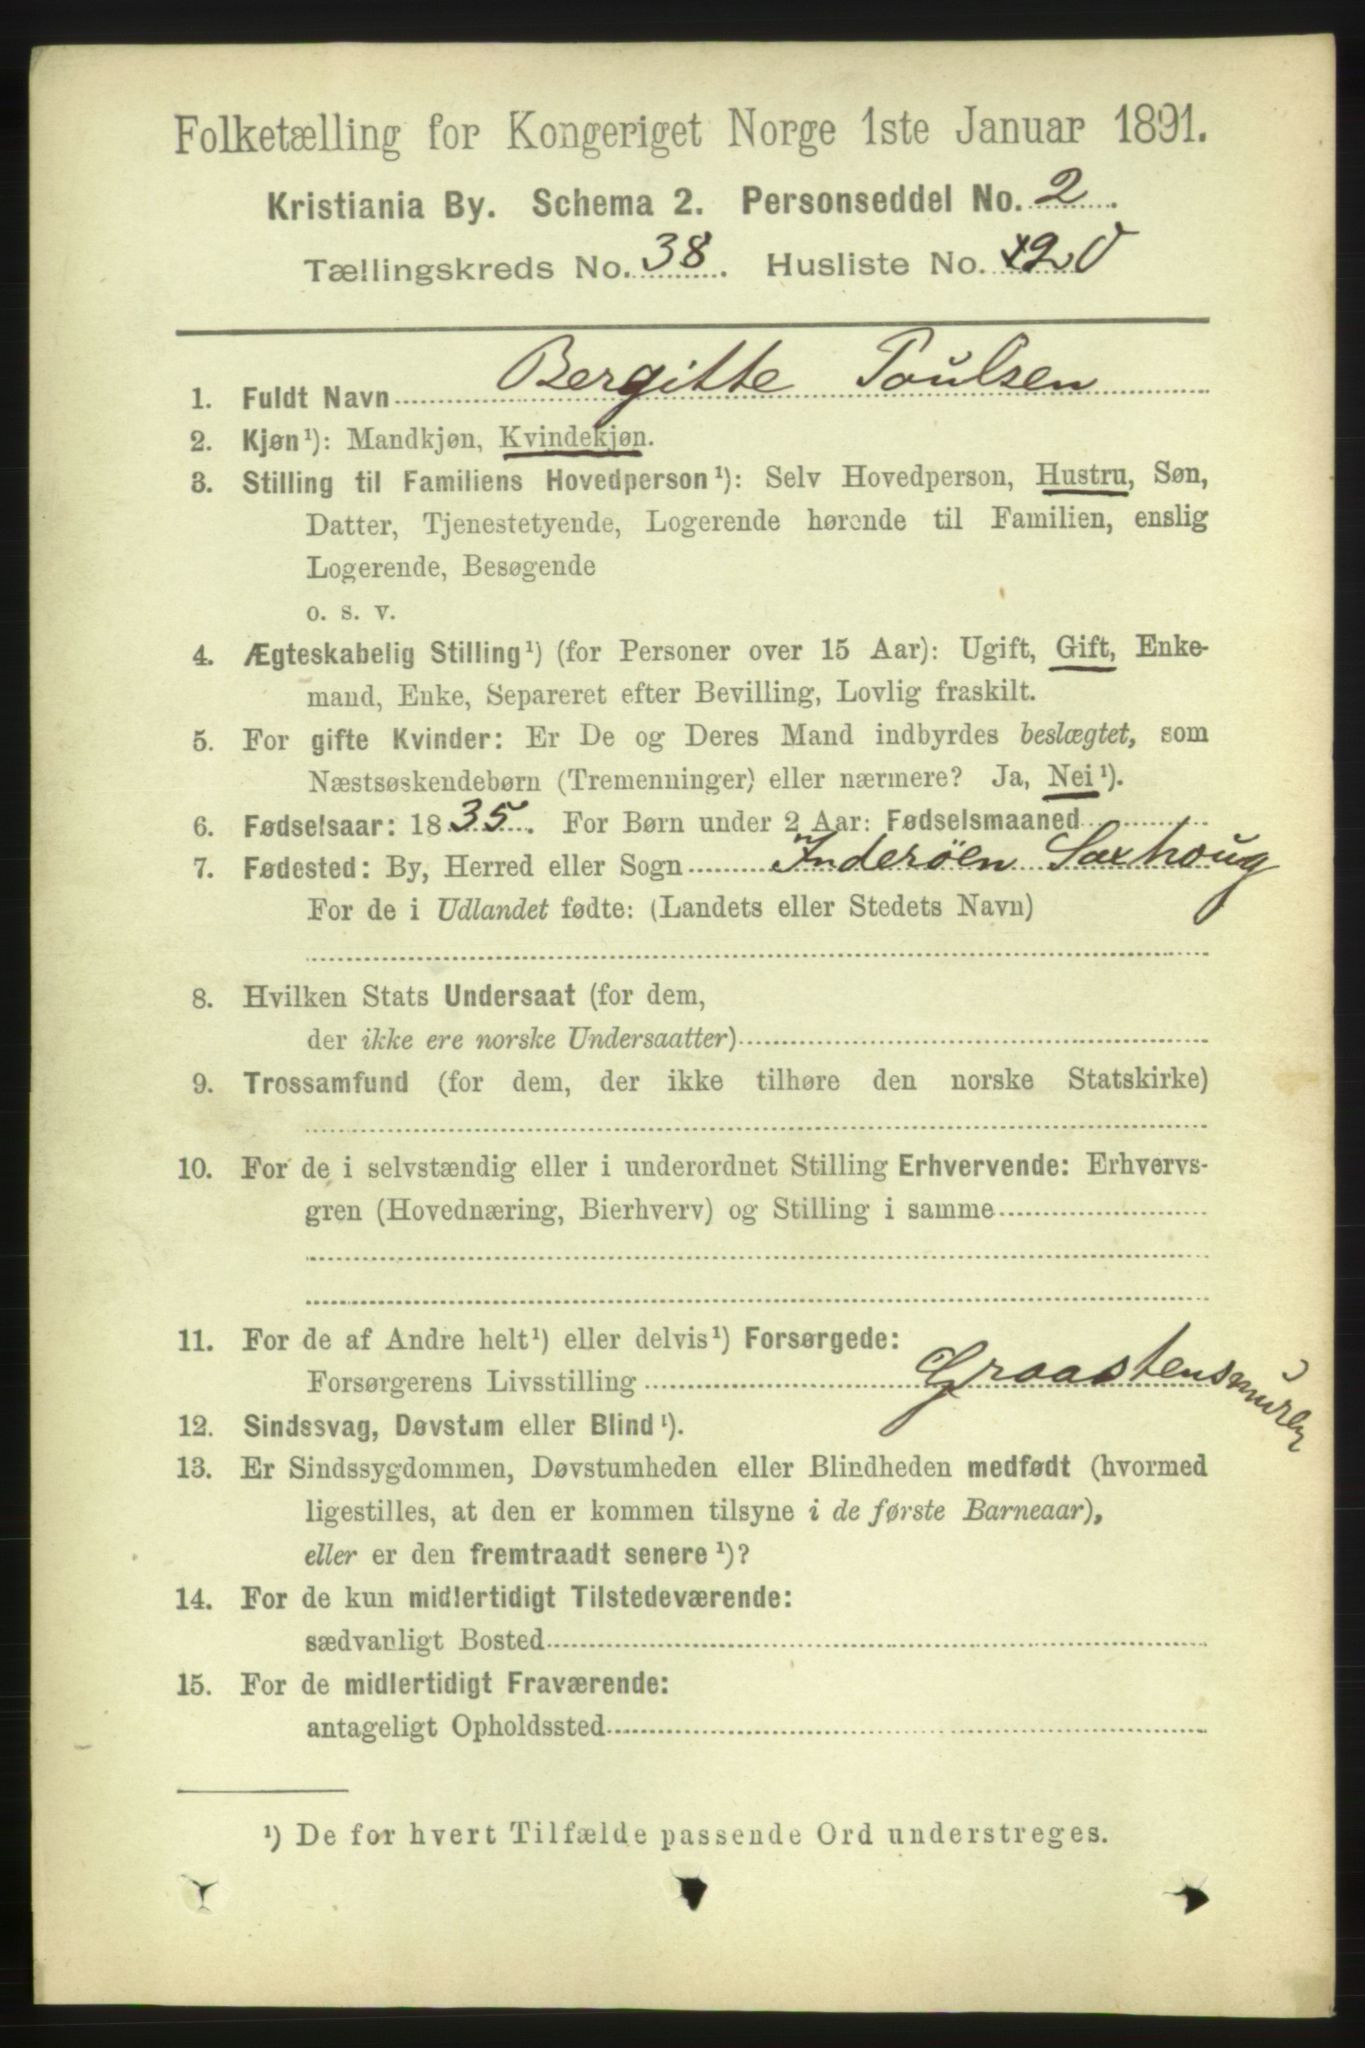 Folketælling for Kongeriget Norge 1ste Januar 1891.
Kristiania By. Schema 2. Personseddel No. 2.
Tællingskreds No. 38. Husliste No. 20
1. Fuldt Navn Bergitte Poulsen
2. Kjøn¹): Mandkjøn, Kvindekjøn.
3. Stilling til Familiens Hovedperson¹): Selv Hovedperson, Hustru, Søn,
Datter, Tjenestetyende, Logerende hørende til Familien, enslig
Logerende, Besøgende
o. s. v.
4. Ægteskabelig Stilling¹) (for Personer over 15 Aar): Ugift, Gift, Enke-
mand, Enke, Separeret efter Bevilling, Lovlig fraskilt.
5. For gifte Kvinder: Er De og Deres Mand indbyrdes beslægtet, som
Næstsøskendebørn (Tremenninger) eller nærmere? Ja, Nei¹).
6. Fødselsaar: 1835. For Børn under 2 Aar: Fødselsmaaned
7. Fødested: By, Herred eller Sogn Inderöen Saxhoug
For de i Udlandet fødte: (Landets eller Stedets Navn)
8. Hvilken Stats Undersaat (for dem,
der ikke ere norske Undersaatter)
9. Trossamfund (for dem, der ikke tilhøre den norske Statskirke)
10. For de i selvstændig eller i underordnet Stilling Erhvervende: Erhvervs-
gren (Hovednæring, Bierhverv) og Stilling i samme
11. For de af Andre helt¹) eller delvis¹) Forsørgede:
Forsørgerens Livsstilling Graastensmurer
12. Sindssvag, Døvstum eller Blind¹).
13. Er Sindssygdommen, Døvstumheden eller Blindheden medfødt (hvormed
ligestilles, at den er kommen tilsyne i de første Barneaar),
eller er den fremtraadt senere¹)?
14. For de kun midlertidigt Tilstedeværende:
sædvanligt Bosted
15. For de midlertidigt Fraværende:
antageligt Opholdssted
¹) De for hvert Tilfælde passende Ord understreges.